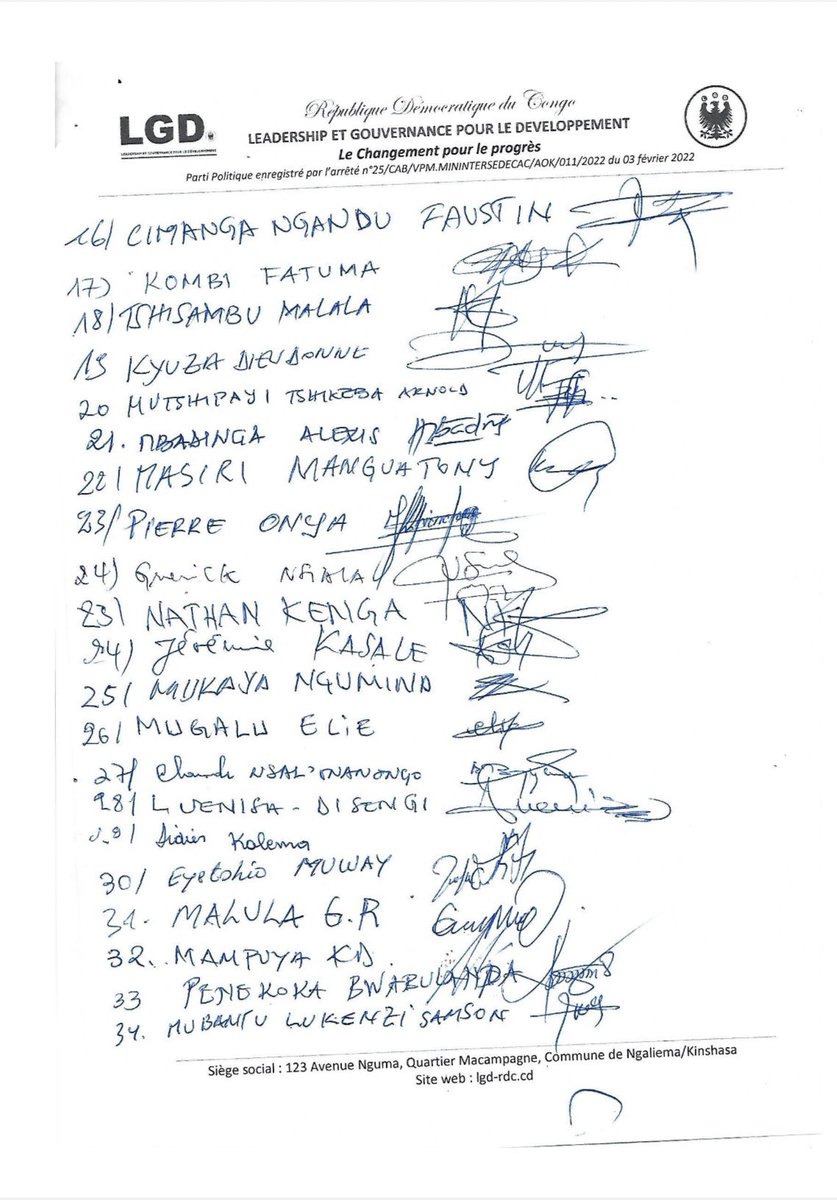 LGD.
LEADERSHIP ET GOUVERNANCE POUR LE DEVELOPPEMENT
République Démocratique du Congo
LEADERSHIP ET GOUVERNANCE POUR LE DEVELOPPEMENT
Le Changement pour le progrès
Parti Politique enregistré par l'arrêté n°25/CAB/VPM.MININTERSEDECAC/AOK/011/2022 du 03 février 2022
16/ CIMANGA NGANDU FAUSTIN
17) KOMBI FATUMA
18/ TSHISAMBU MALALA
19 KYUZA DIEUDONNE
20 MUTSHIPAYI TSHIKEBA ARNOLD
21. MBADINGA ALEXIS
22/ MASIRI MANGUATONY
23/ PIERRE ONYA
24) Guerick NGALA
23/ NATHAN KENGA
24) Jérémie KASALE
25/ MUKAYA NGUMINA
26/ MUGALU ELIE
27/ NSAL'ONANONGO
28/ LUENISA - DISENGI
29/ Didier Kalema
30/ Eyetshio MUWAY
31. MALULA G.R
32. MAMPUYA KD.
33 PENEKOKA BWABULANDA
34. MUBANTU LUKENZI SAMSON
Siège social : 123 Avenue Nguma, Quartier Macampagne, Commune de Ngaliema/Kinshasa
Site web : lgd-rdc.cd